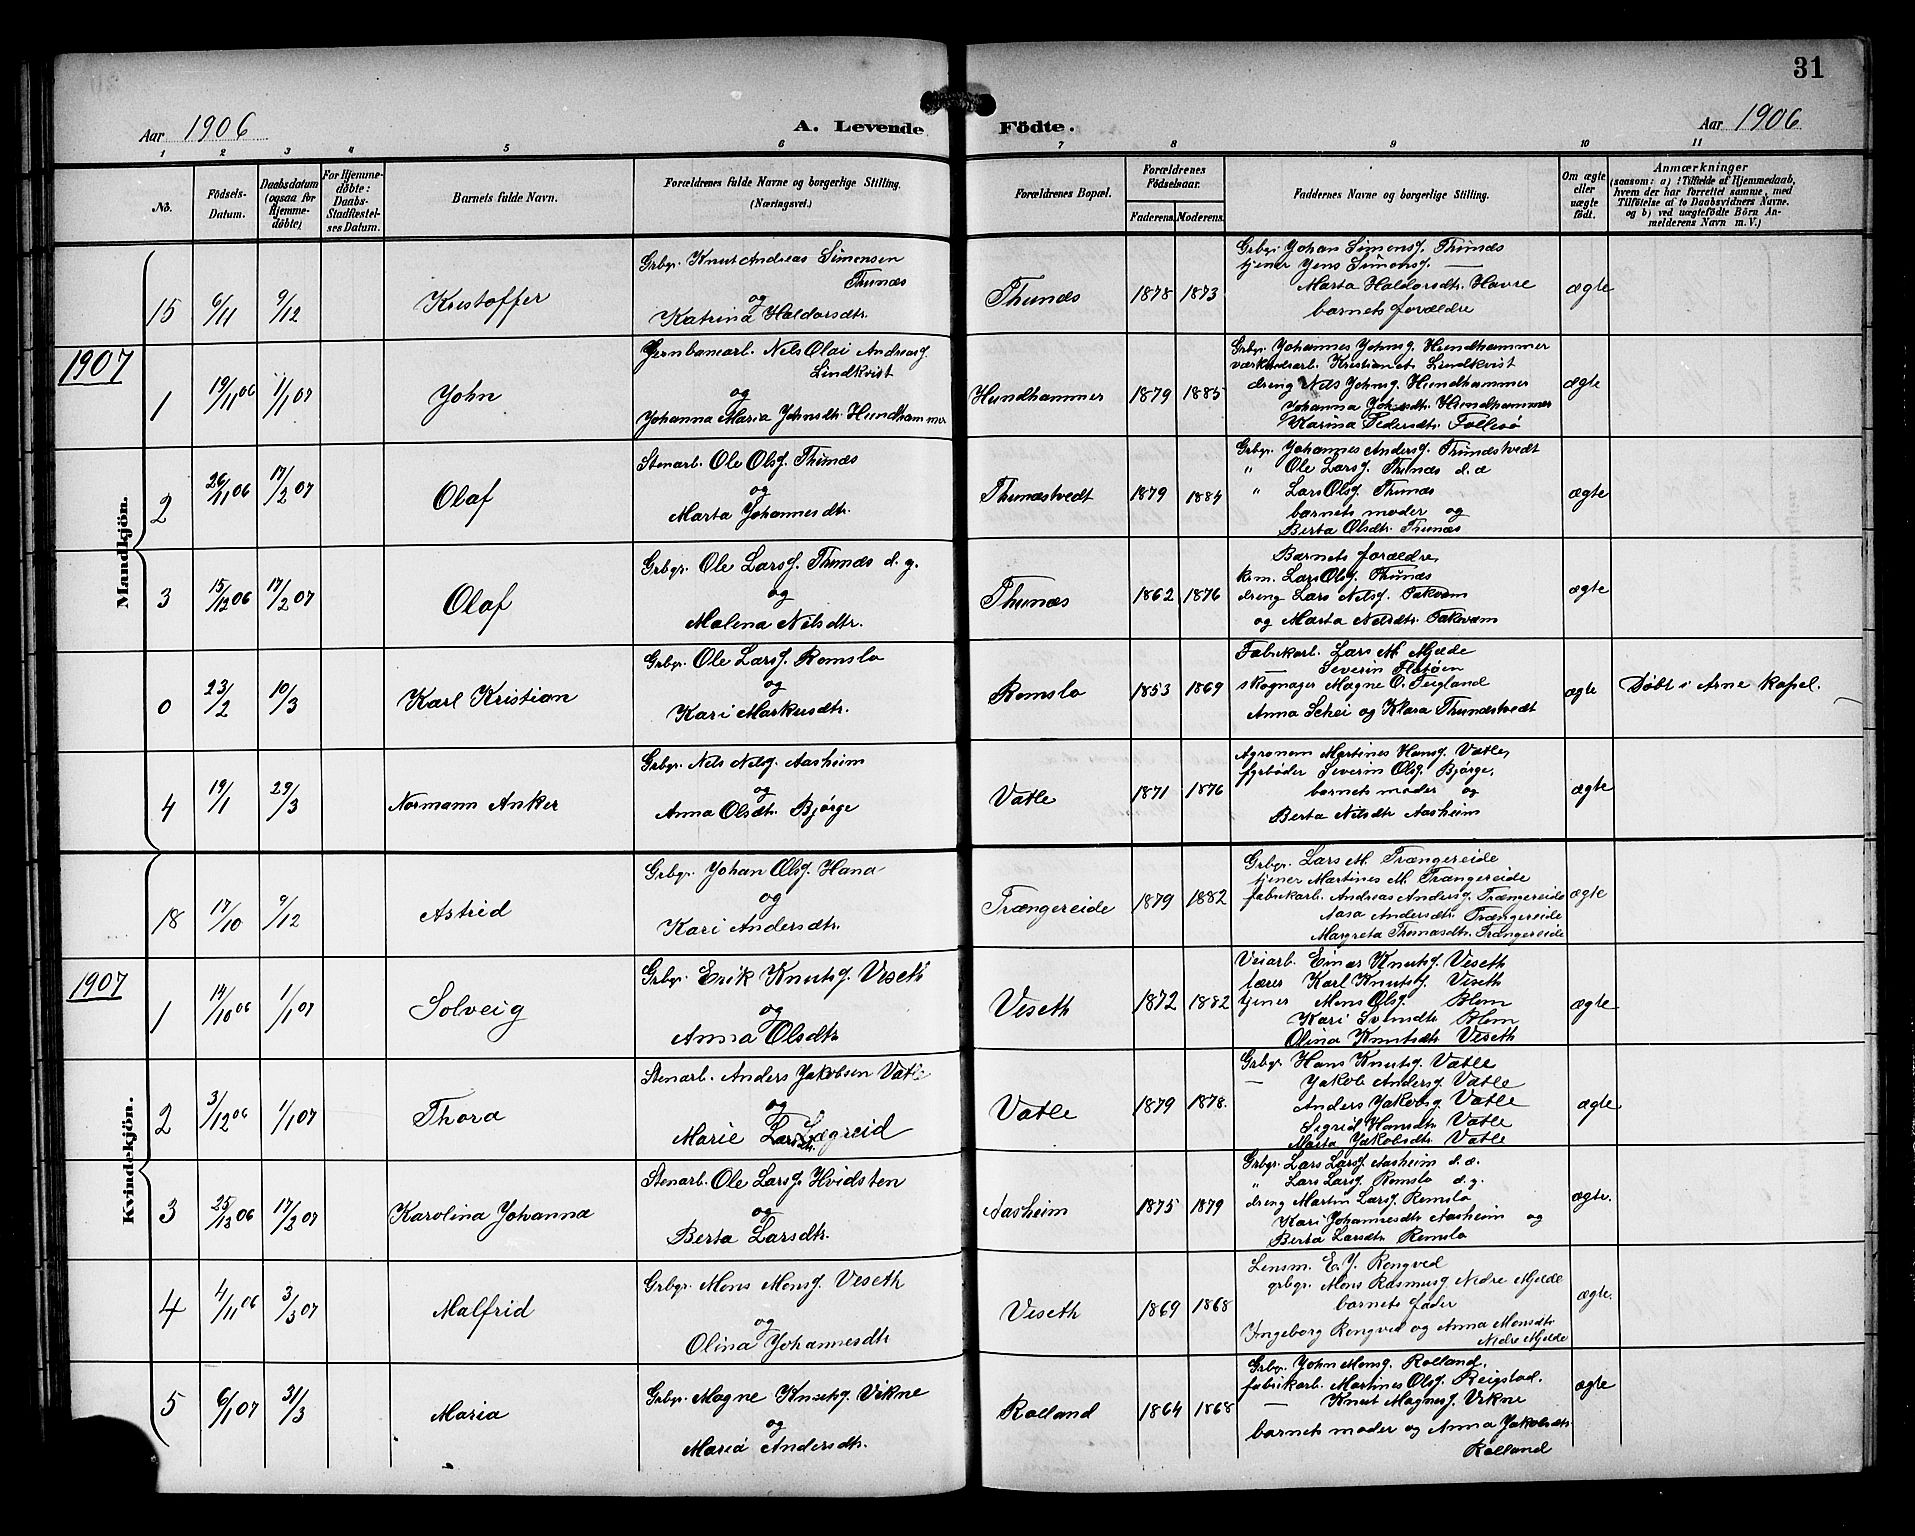 31
Aar 1906 A. Levende Födte. Aar 1906
1 2 3 4 5 6 7 8 9 10 11
No.
Födsels-Datum.
Daabsdatum (ogsaa for Hjemmedöbte)
For Hjemmedöbte: Daabs-Stadfæstelses Datum.
Barnets fulde Navn.
Forældrenes fulde Navne og borgerlige Stilling.
(Næringsvei.)
Forældrenes Bopæl.
Forældrenes Födselsaar.
Faderens. Moderens.
Faddernes Navne og borgerlige Stilling.
Om ægte eller uægte födt.
Anmærkninger
(saasom: a) i Tilfælde af Hjemmedaab,
hvem der har forrettet samme, med
Tilföielse af to Daabsvidners Navne.
og b) ved uægtefödte Börn Anmelderens Navn m.V.)
Mandkjön.
15 6/11 9/12 Kristoffer
Grbgr. Knut Andreas Simensen
Thunæs
og
Katrina Haldorsdtr.
Thunæs 1878 1873
Grbgr. Johan Simensg. Thunæs
tjener Jens Simensg. —
Marta Haldorsdtr. Havre
barnets forældre
ægte
1907
1 19/11 06 1/1 07 John
Jernbanearb. Nels Olai Andreasg.
Lindkvist
og
Johanna Maria Johnsdtr. Hundhammer
Hundhammer 1879 1885
Grbgr. Johannes Johnsg. Hundhammer
Kristian Lindkvist
dreng Nels Johnsg. Hundhammer
Johanna Johnsdtr. Hundhammer
Karina Pedersdtr. Follesö
ægte
2 26/11 06 17/2 07 Olaf
Stenarb. Ole Olsg. Thunæs
og
Marta Johannesdtr.
Thunæstvedt 1879 1884
Grbgr. Johannes Andersg. Thunæstvedt
" Ole Larsg. Thunæs d. æ
" Lars Olsg. Thunæs
barnets moder og
Berta Olsdtr. Thunæs
ægte
3 15/12 06 17/2 07 Olaf
Grbgr. Ole Larsg. Thunæs d. y.
og
Malena Nilsdtr.
Thunæs 1862 1876
Barnets forældre,
Lars Olsg. Thunæs
dreng Lars Nelsg. Takvam
og Marta Nelsdtr. Takvam
ægte
0 23/2 10/3 Karl Kristian
Grbgr. Ole Larsg. Romslo
og
Kari Markusdtr.
Romslo 1853 1869
Fabrikarb. Lars M. Mjelde
— Severin Flatöen
skognager Magne O. Teigland
Anna Schei og Klara Thunæstvedt
ægte Döbt i Arne kapel.
4 19/1 29/3 Normann Anker
Grbgr. Nels Nelsg. Aasheim
og
Anna Olsdtr. Bjørge
Vatle 1871 1876
Agronom Martines Hansg. Vatle,
fyrbøder Severin Olsg. Bjørge,
barnets moder og
Berta Nilsdtr. Aasheim
ægte
Kvindekjön.
18 17/10 9/12 Astrid
Grbgr. Johan Olsg. Hana
og
Kari Andersdtr.
Trængereide 1879 1882
Grbgr. Lars M. Trængereide
tjener Martines M. Trængereide
fabrikarb. Andreas Andersg. Trængereide
Aasa Andersdtr. Trængereide
Margreta Thomasdtr. Trængereide
ægte
1907
1 14/10 06 1/1 07 Solveig
Grbgr. Erik Knutsg. Veseth
og
Anna Olsdtr.
Veseth 1872 1882
Veiarb. Einar Knutsg. Veseth
lærer Karl Knutsg. Veseth
tjener Mons Olsg. Blom
Kari Svendtr. Blom
Olina Knutsdtr. Veseth
ægte
2 3/12 06 1/1 07 Thora
Stenarb. Anders Jakobsen Vatle
og
Marie Larsdtr. Lægreid
Vatle 1879 1878.
Grbgr. Hans Knutsg. Vatle
— Jakob Andersg. Vatle
Anders Jakobsg. Vatle
Sigrid Hansdtr. Vatle
Marta Jakobsdtr. Vatle
ægte
3 25/12 06 17/2 07 Karolina Johanna
Stenarb. Ole Larsg. Hvidsten
og
Berta Larsdtr.
Aasheim 1875 1879
Grbgr. Lars Larsg. Aasheim d. æ.
" Lars Larsg. Romslo d. y.
dreng Martin Larsg. Romslo
Kari Johannesdtr. Aasheim og
Berta Larsdtr. Romslo
ægte.
4 4/11 06 3/3 07 Malfrid
Grbgr. Mons Monsg. Veseth
og
Olina Johannesdtr
Veseth 1869 1868
Lensm. E. J. Rongved
grbgr. Mons Rasmusg. Nedre Mjelde
barnets fader
Ingeborg Rongved og Anna Monsdtr.
Nedre Mjelde
ægte.
5 6/1 07 31/3 Maria
Grbgr. Magne Knutsg. Vikne
og
Maria Andersdtr.
Rolland 1864 1868
Grbgr. John Monsg. Rolland.
fabrikarb. Martines Olsg. Reigstad.
— Knut Magnesg. Vikne
barnets moder og Anna Jakobsdtr.
Rolland
ægte